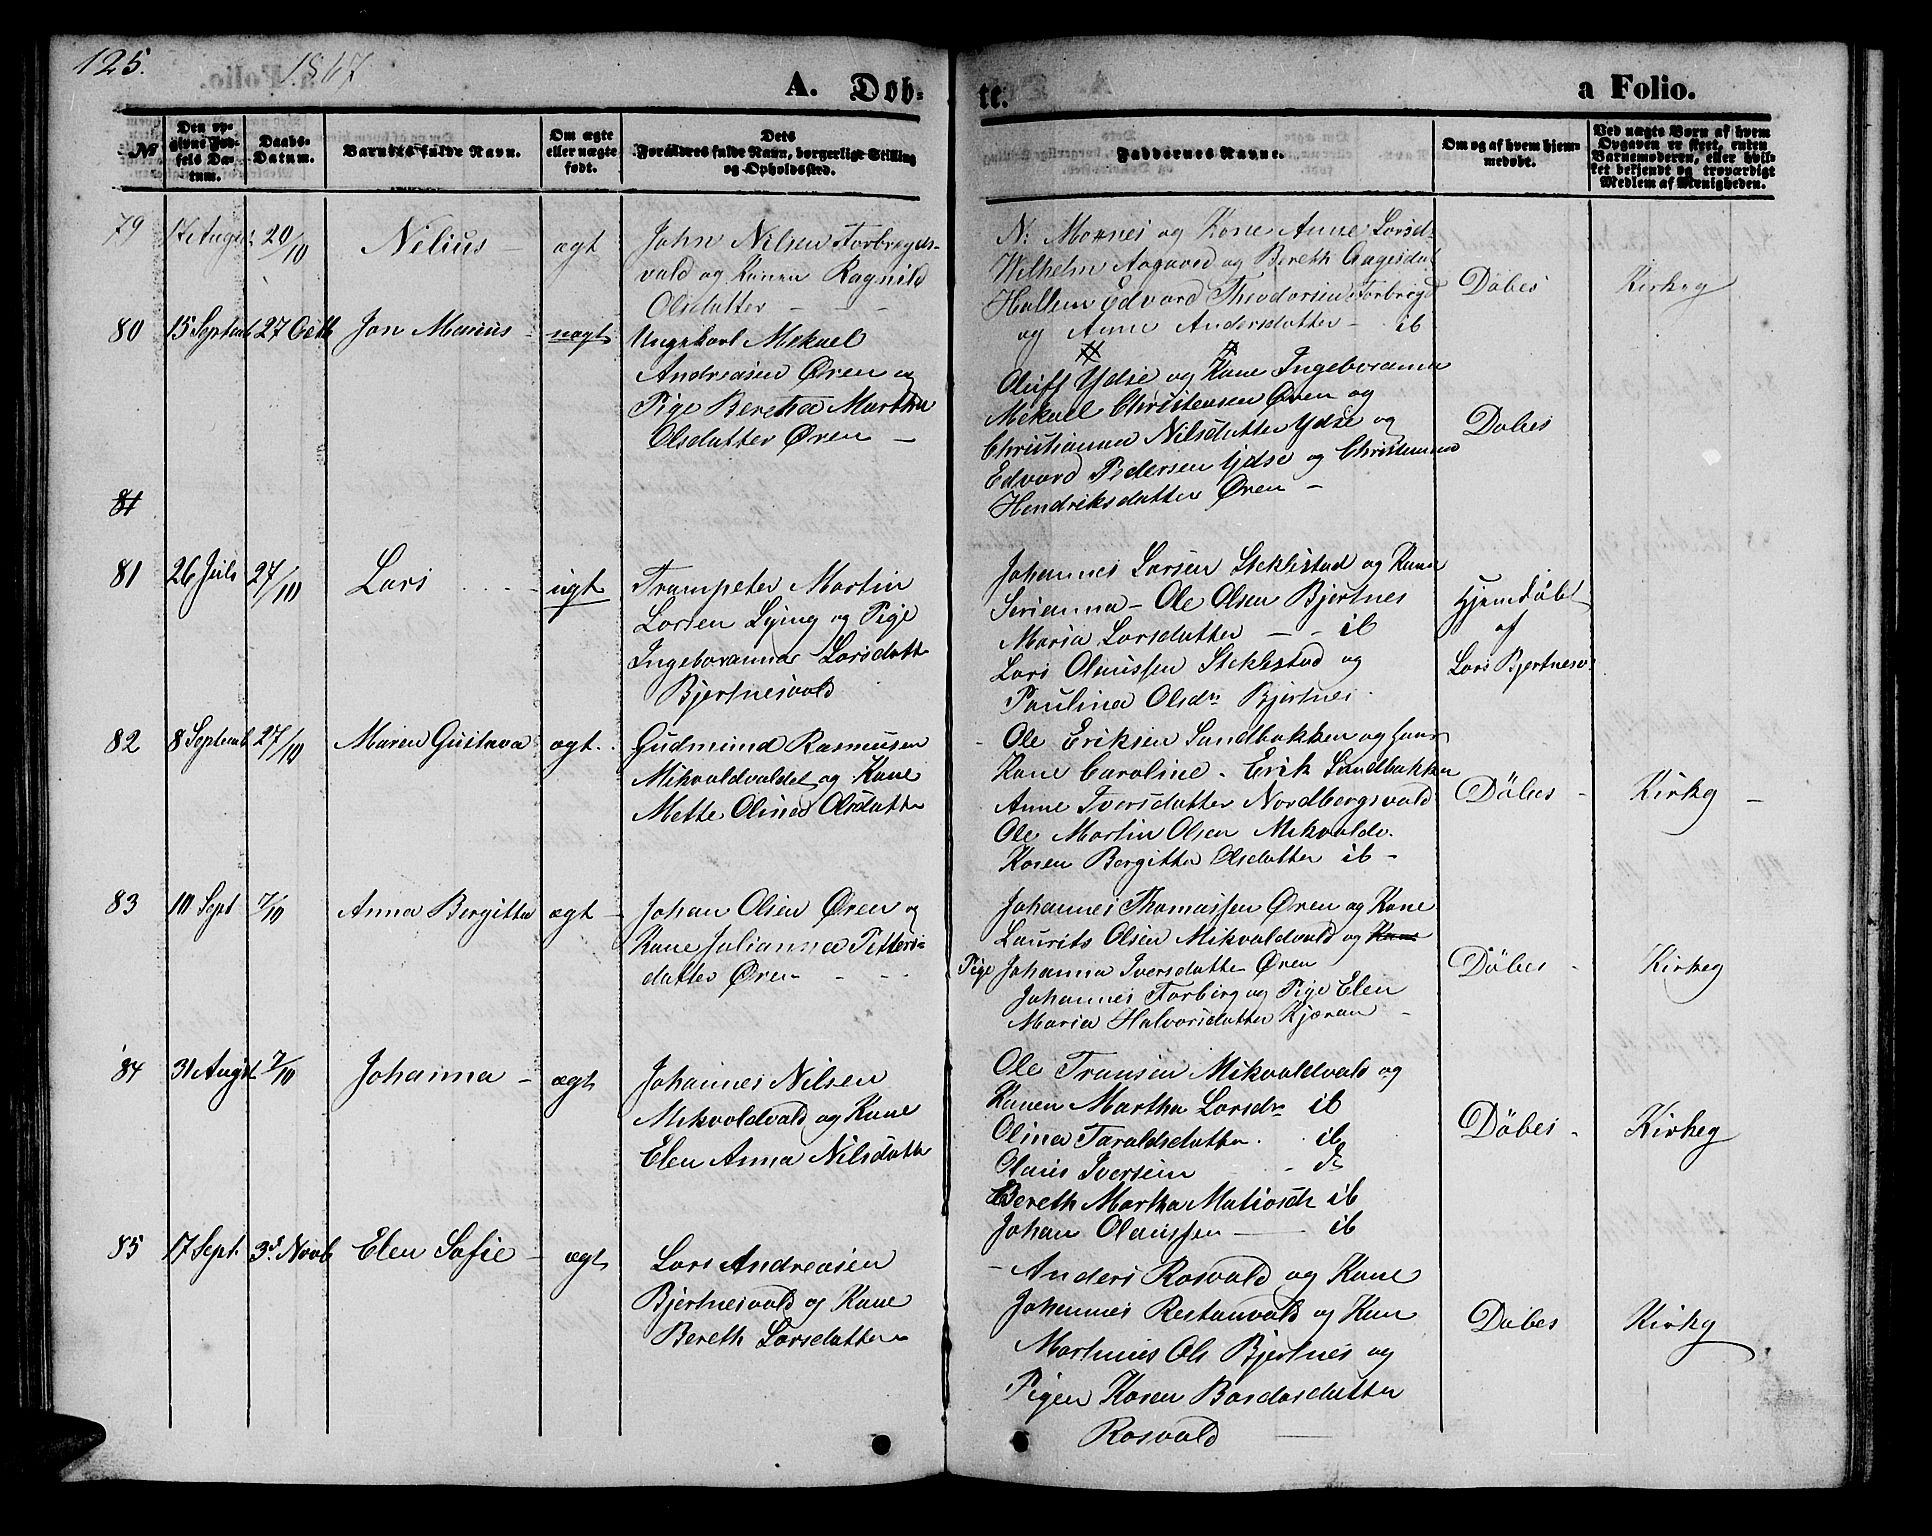 125. 1867
A. Døb-
te.
a Folio.
№
Den op-
givne Fød-
sels Da-
tum.
Daabs-
Datum.
Barnets fulde Navn.
Om ægte
eller uægte
født.
Dets
Forældres fulde Navn, borgerlige Stilling
og Opholdssted.
Faddernes Navne.
Om og af hvem hjem-
medøbt.
Ved uægte Børn af hvem
Opgaven er skeet, enten
Barnemoderen, eller hvil-
ket bekjendt og troværdigt
Medlem af Menigheden.
79 17 August 20/10 Nilius ægt
John Nilsen Forbregds-
vald og Konen Ragnild
Olsdatter
N: Mones og Kone Anne Larsd
Wilhelm Aagaard og Bereth Aagesdat
Hallem Edvard Theodorsen Forbregd
og Anne Andersdatter - ib
Døbes Kirkeg
80 15 Septemb 27 Octb Jon Marius - uægt
Ungekarl Mekael
Andreasen Øren og
Pige Beretha Martha
Olsdatter Øren -
Oluff Ydse og Kane Ingeboranna
Mekael Christensen Øren og
Christianna Nilsdatter Ydse og
Edvard Pedersen Ydse og Christianna
Hendriksdatter Øren -
Døbes
81
81 26 Juli 27/10 Lars uægt
Trompeter Martin
Larsen Lying og Pige
Ingeboranna Larsdatt
Bjertnesvald
Johannes Larsen Steklestad og Kane
Serianna - Ole Olsen Bjertnes
Maria Larsdatter - - ib
Lars Olaussen Steklestad og
Paulina Olsdr Bjertnes.
Hjemdøbt
af
Lars Bjertnesv
82 8 Septemb 27/10 Maren Gustava ægt.
Gudmund Rasmusen
Mikvoldvaldet og Kane
Mette Olina Olsdatte
- Ole Eriksen Sandbakken og hans
Kane Caroline. Erik Sandbakken
Anne Iversdatter Nordbergsvald
Ole Martin Olsen Mikvoldv.
Karen Bergitta Olsdatter ib -
Døbes - Kirkeg -
83 10 Sept 7/10 Anna Bergitta ægt -
Johan Olsen Øren og
Kane Julianna Petters-
datter Øren - - -
Johannes Thomassen Øren og Kane
Laurits Olsen Mikvoldvald og Kane
Pige Johanna Iversdatter Øren
Johannes Forberg og Pige Elen
Maria Halvorsdatter Kjæran -
Døbes - Kirkeg
84 31 Augst 7/10 Johanna - ægt
Johannes Nilsen
Mikvoldvald og Kane
Elen Anna Nilsdatte
Ole Transen Mikvoldvald og
Kanen Martha Larsdr ib
Olina Taraldsdatter. ib
Olaus Iversen - ib
Bereth Martha Matiasdr ib
Johan Olaussen - ib
Døbes - Kirkeg
85 17 Sept. 3d Novb Elen Sofie - ægt
Lars Andreasen
Bjertnesvald og Kane
Bereth Larsdatter
- Anders Rosvald og Kane
Johannes Restauvald og Kane
Martinus Ols Bjertnes og
Pigen Karen Bardosdatter
Rosvald
Døbes Kirkeg